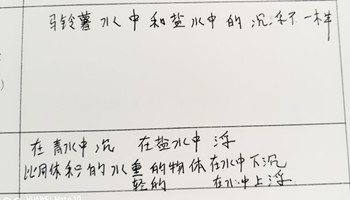 马铃薯水中和盐水中的沉浮不一样
在青水中沉 在盐水中浮
比同体积的水重的物体在水中下沉
轻的 在水中上浮